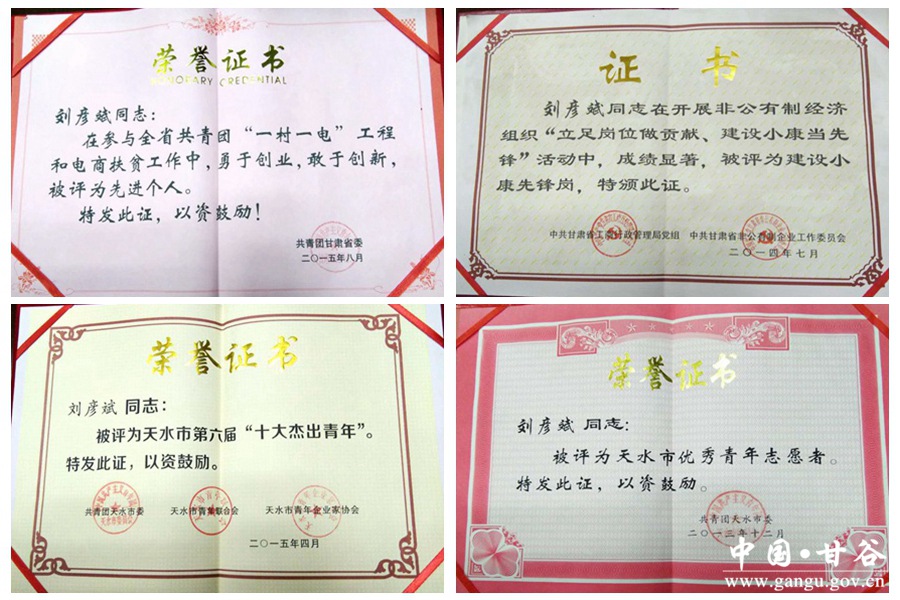 荣誉证书
HONORARY CREDENTIAL
刘彦斌同志：
在参与全省共青团“一村一电”工程
和电商扶贫工作中，勇于创业，敢于创新，
被评为先进个人。
特发此证，以资鼓励！
共青团甘肃省委
二〇一五年八月
证书
刘彦斌同志在开展非公有制经济
组织“立足岗位做贡献、建设小康当先
锋”活动中，成绩显著，被评为建设小
康先锋岗，特颁此证。
中共甘肃省工商行政管理局党组 中共甘肃省非公有制企业工作委员会
二〇一四年七月
荣誉证书
刘彦斌 同志：
被评为天水市第六届“十大杰出青年”。
特发此证，以资鼓励。
共青团天水市委 天水市青年联合会 天水市青年企业家协会
二〇一五年四月
荣誉证书
刘彦斌 同志：
被评为天水市优秀青年志愿者。
特发此证，以资鼓励。
共青团天水市委
二〇一三年十二月
中国·甘谷
www.gangu.gov.cn